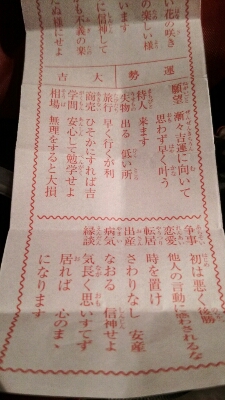 い花の咲き
の楽しい様
います
に信神して
も不義の楽
たぬ様にせよ
運勢
大吉
願望 漸々吉運に向いて
思わず早く叶う
待人 来ます
失物 出る 低い所
旅行 早く行くが利
商売 ひそかにすれば吉
学問 安心して勉学せよ
相場 無理をすると大損
争事 初は悪く後勝
恋愛 他人の言動に惑わされるな
転居 時を置け
出産 さわりなし 安産
病気 なおる 信神せよ
縁談 気長く思いすてず
居れば 心のまゝ
になります